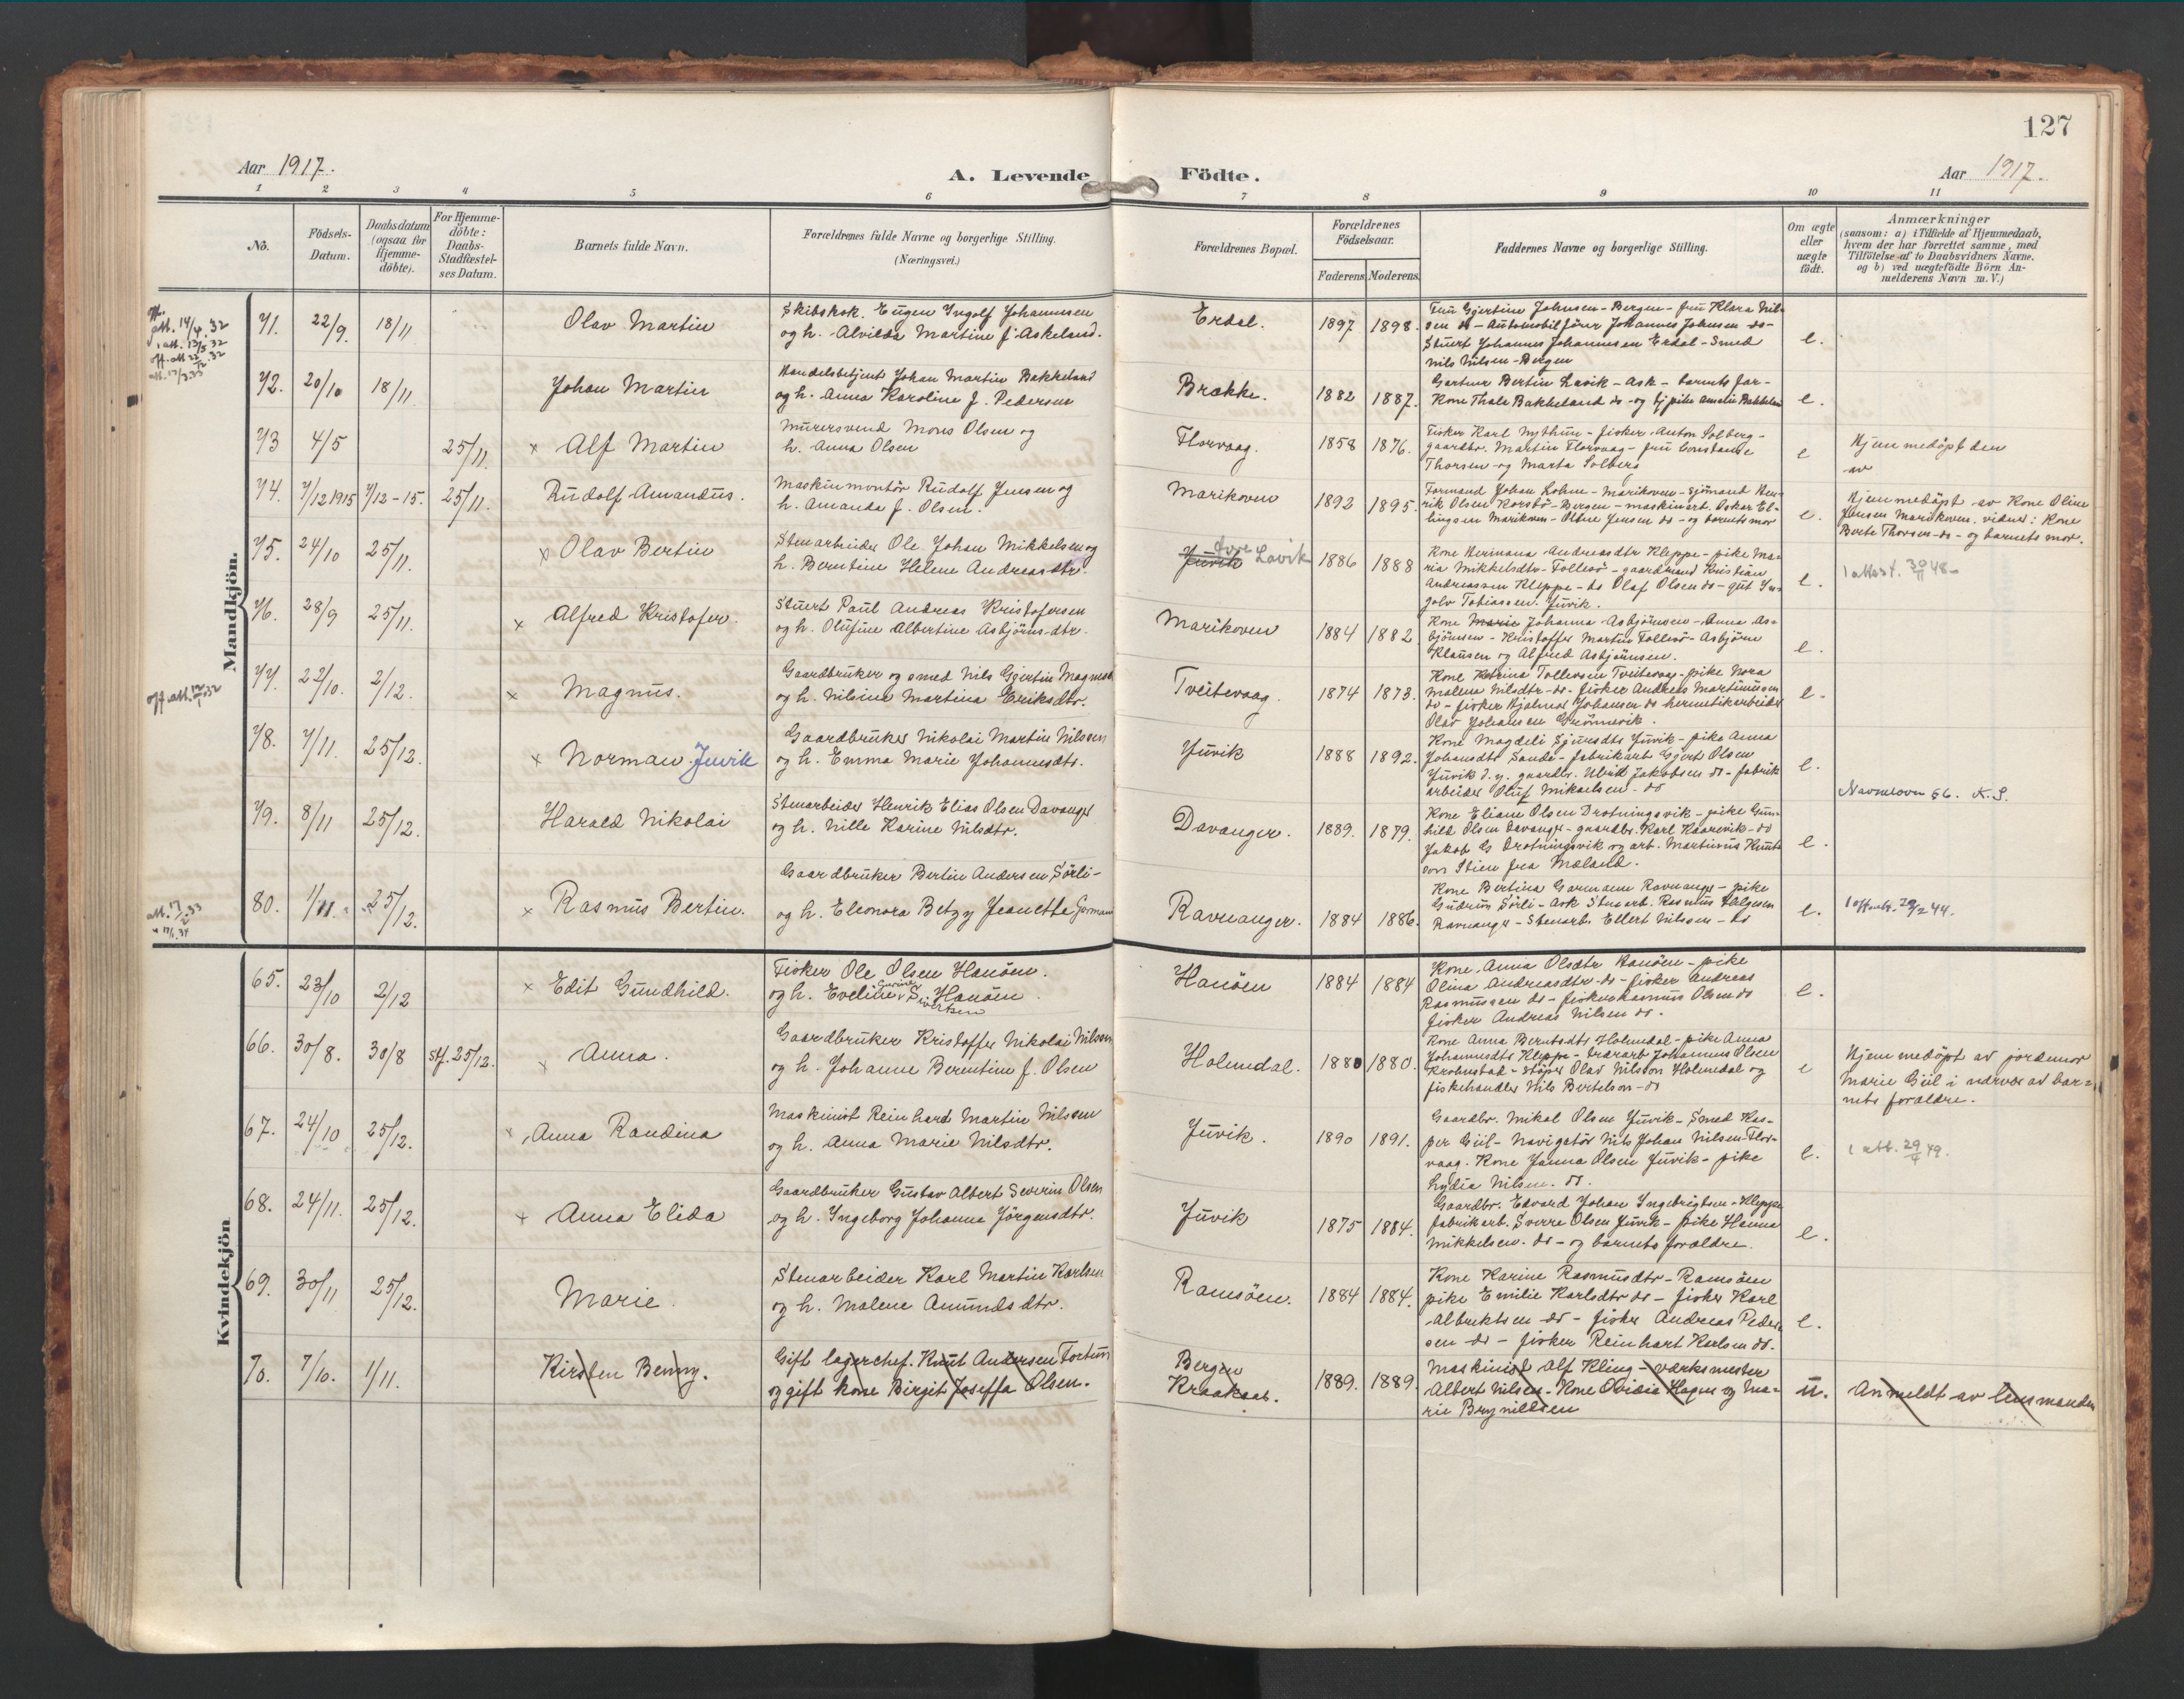 127
Aar 1917.
A. Levende Födte.
Aar 1917.
1 2 3 4 5 6 7 8 9 10 11
No.
Födsels-Datum.
Daabsdatum (ogsaa for Hjemme-döbte).
For Hjemme-döbte: Daabs-Stadfæstel-ses Datum.
Barnets fulde Navn.
Forældrenes fulde Navne og borgerlige Stilling. (Næringsvei.)
Forældrenes Bopæl.
Forældrenes Födselsaar.
Faderens
Moderens
Faddernes Navne og borgerlige Stilling.
Om ægte eller uægte födt.
Anmærkninger
(saasom: a) i Tilfælde af Hjemmedaab,
hvem der har forrettet samme, med
Tilföielse af to Daabsvidners Navne,
og b) ved uægtefödte Börn An-
melderens Navn m. V.)
Mandkjön.
71. 22/9. 18/11 Olav Martin
Skibskok. Eugen Ingolf Johannesen
og h. Alvilda Martine f. Askeland.
Erdal. 1897 1898.
Fru Gjertine Johnsen - Bergen - fru Klara Nil-
sen do - Automobilförer Johannes Johnsen do -
Stuert Johannes Johannesen Erdal - Smed
Nils Nilsen - Bergen
e.
72. 20/10 18/11 Johan Martin
Handelsbetjent Johan Martin Bakkeland
og h. Anna Karoline f. Pedersen
Brække. 1882 1887.
Gartner Bertin Lavik - Ask - barnets far -
Kone Thale Bakkeland do - og pike Amalie Bakkeland
e.
73 4/5 25/11. x Alf Martin
Murersvend Mons Olsen og
h. Anna Olsen
Florvaag. 1858 1876.
Fisker Karl Nythun - fisker Anton Solberg -
gaardbr. Martin Florvaag - fru Constance
Thorsen og Marta Solberg
e
Hjemmedöpt den
av
74. 7/12 1915 7/12-15. 25/11. Rudolf Amandus.
Maskinmontör Rudolf Jensen og
h. Amanda f. Olsen.
Marikoven 1892 1895.
Formand Johan Lohne - Marikoven - sjömand Hen-
rik Olsen Korsbö - Bergen - maskinarb. Oskar El-
lingsen Marikoven - Oline Jensen do - og barnets mor
e.
Hjemmedöpt av Kone Oline
Jensen Marikoven, vidner: Kone
Berte Thorsen - do - og barnets mor.
75. 24/10 25/11. x Olav Bertin
Stenarbeider Ole Johan Mikkelsen og
h. Berntine Helene Andreasdtr.
Juvik Lavik 1886 1888
Kone Hermana Andreasdtr Kleppe - pike Ma-
ria Mikkelsdtr - Follesö - gaardmand Kristian
Andreassen Kleppe - do Olaf Olsen do - gut In-
golv Tobiassen. Juvik.
e.
1 attest. 30/11 48.
76. 28/9 25/11. x Alfred Kristofer.
Stuert Paul Andreas Kristofersen
og h. Olufine Albertine Asbjörnsdtr.
Marikoven 1884 1882
Kone Marie Johanna Asbjörnsen - Anna As-
björnsen - Kristoffer Martin Follesö - Asbjörn
Klausen og Alfred Asbjörnsen.
e.
77. 22/10. 2/12. x Magnus.
Gaardbruker og smed Nils Gjertin Magnus
og h. Nilsine Martina Eriksdtr.
Tveitevaag. 1874 1873.
Kone Katrina Tollevsen Tveitevaag - pike Nora
Malena Nilsdtr - do - fisker Andreas Martinussen
do - fisker Hjalmar Johansen do hermetikarbeider
Olav Johansen
e.
78. 7/11. 25/12. x Norman Juvik
Gaardbruker Nikolai Martin Nilssen
og h. Emma Marie Johannesdtr.
Juvik 1888 1892.
Kone Magdeli Sjursdtr Juvik - pike Anna
Johansdtr Sande - fabrikarb Gjert Olsen
Juvik d.y. gaardbr. Jakobsen do - fabrik
arbeider Oluf Mikalsen - do
e.
Navneloven §6. K.S.
79. 8/11 25/12. Harald Nikolai
Stenarbeider Henrik Elias Olsen Davanger
og h. Nille Karine Nilsdtr.
Davanger. 1889. 1879.
Kone Eliane Olsen Drotningsvik - pike Gun-
hild Olsen Davanger - gaardbr. Karl Kaarevik - do
Jakob G Drotningsvik og arb. Martinus Knut-
son Stien fra Mæland.
e.
80. 1/11. 25/12. x Rasmus Bertin.
Gaardbruker Bertin Andersen Sörli -
og h. Eleonora Betzy Jeanette Garmann
Ravnanger. 1884 1886.
Kone Bertina Garmann Ravnanger - pike
Gudrun Sörli - Ask Stenarb. Rasmus Helgesen
Ravnanger - Stenarb. Ellert Nilssen - do
e.
Kvindekjön
65. 23/10 2/12 x Edit Gundhild.
Fisker Ole Olsen Hanöen.
og h. Eveline S. Hanöen.
Sivertsen
Hanöen 1884 1884
Kone Anna Olsdtr Hanöen - pike
Olina Andreasdtr - do - fisker Andreas
Rasmussen do - fisker Rasmus Olsen do
fisker Andreas Nilsen do.
e.
66. 30/8. 30/8 stf. 25/12. x Anna.
Gaardbruker Kristoffer Nikolai Nilsson
og h. Johanne Berentine f. Olsen
Holmedal. 1880 1880.
Kone Anna Berntsdtr Holmedal - pike Anna
Johannesdtr Kleppe - Johannes Olsen
Krohnstad - Olav Nilsson Holmedal og
fiskehandler Nils Bertelson - do
e
Hjemmedöpt av jordemor
Marie Giil i nærvær av bar-
nets forældre.
67. 24/10 25/12. x Anna Randina
Maskinist Reinhard Martin Nilssen
og h. Anna Marie Nilsdtr.
Juvik. 1890 1891.
Gaardbr. Mikal Olsen Juvik - Smed Kas-
per Giil - Navigatör Nils Johan Nilsen Flor-
vaag. Kone Janna Olsen Juvik - pike
Lydia Nilsen. do.
e.
1 att. 29/4 49.
68. 24/11. 25/12. x Anna Elida
Gaardbruker Gustav Albert Severin Olsen
og h. Ingeborg Johanna Jörgensdtr.
Juvik 1875 1884.
Gaardbr. Edvard Johan Ingebrigtsen - Kleppe
fabrikarb. Sverre Olsen Juvik - pike Hanna
Mikkelsen. do - og barnets forældre.
e.
69. 30/11 25/12. Marie.
Stenarbeider Karl Martin Karlsen
og h. Malene Amundsdtr.
Ramsöen. 1884 1884.
Kone Karine Rasmusdtr - Ramsöen
pike Emilie Karlsdtr do - fisker Karl
Albrektsen do - fisker Andreas Peder-
sen do - fisker Reinhart Karlsen do.
e.
70. 7/10. 1/11. Kirsten Benny.
Gift lagerchef. Knut Andersen Fortun
og gift kone Birgit Joseffa Olsen.
Bergen
Kraakaas. 1889. 1889.
Maskinist Alf Kling - værksmester
Albert Nilsen - Kone Ovidia Hagen og Ma-
rie Brynildsen
u.
Anmeldt av lensmanden